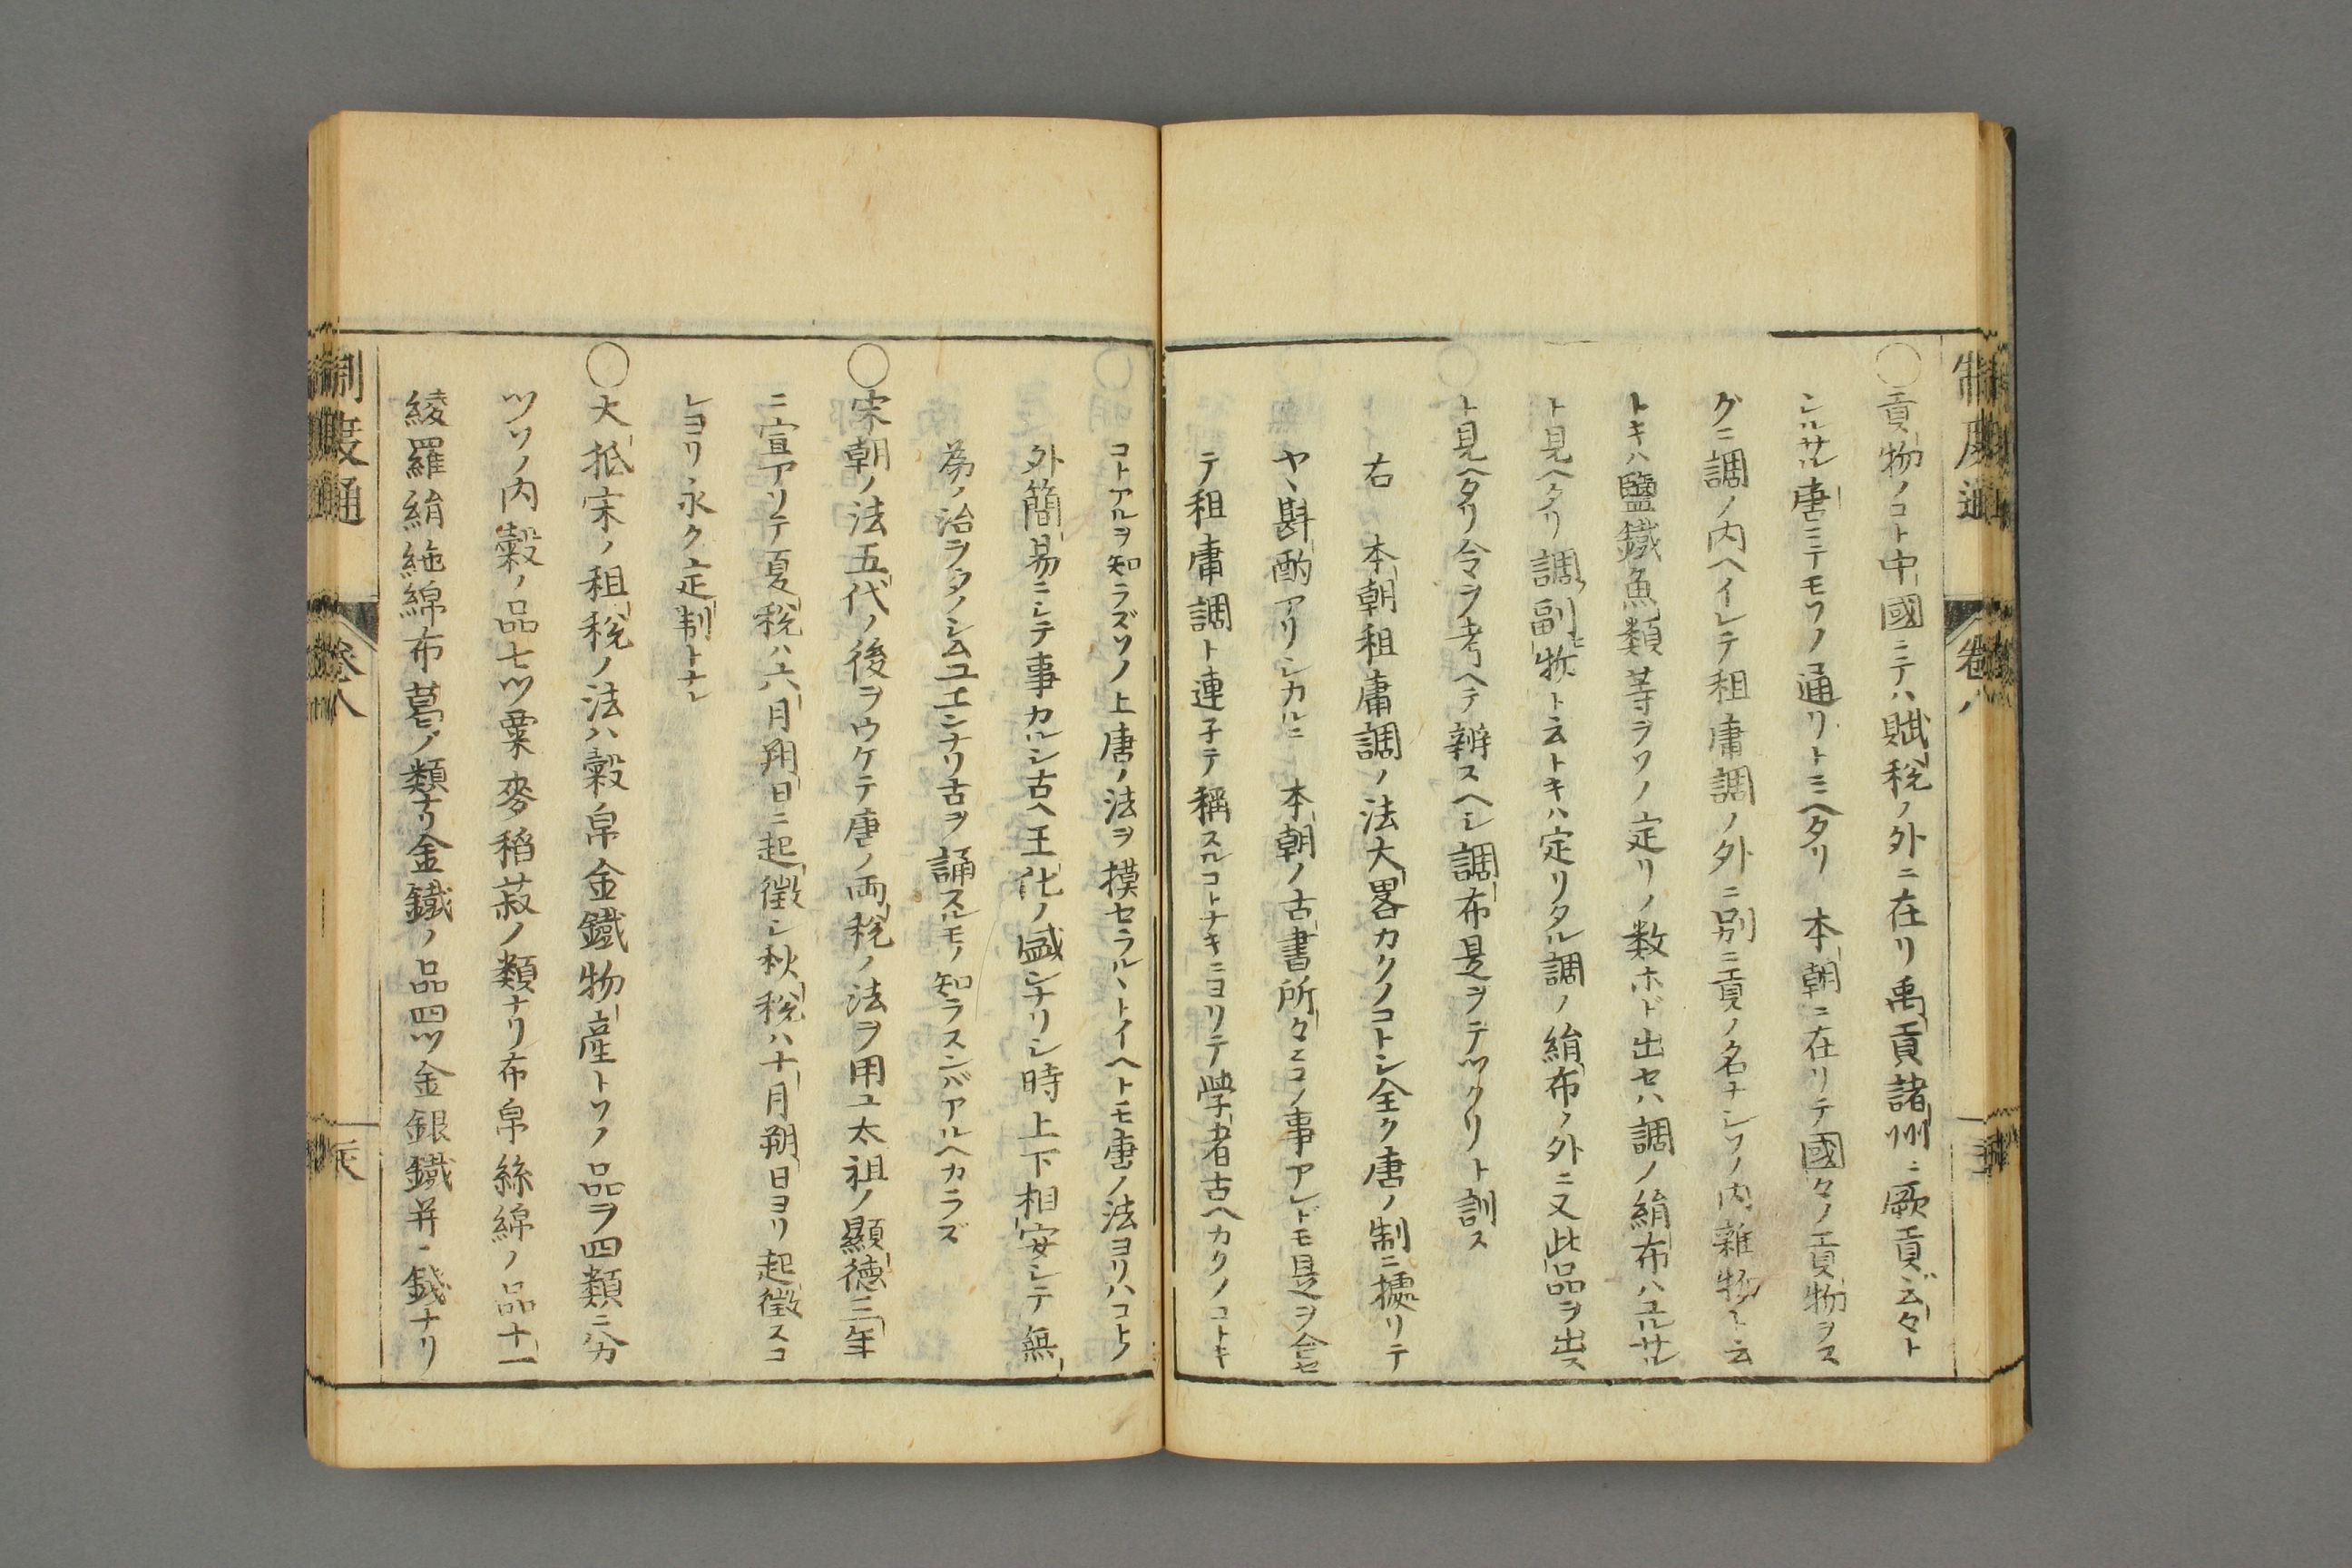 ○貢物ノコト中國ニテハ賦税ノ外ニ在リ禹貢諸州ニ厥貢云々ト
シルサル唐ニテモソノ通リトミヘタリ　本朝ニ在リテ國々ノ貢物ヲス
グニ調ノ内ヘイレテ租庸調ノ外ニ別ニ貢ノ名ナシソノ内雜物ト云
トキハ鹽鐵魚類等ヲソノ定リノ数ホド出セハ調ノ絹布ハユルサル
ト見ヘタリ調副物ト云トキハ定リタル調ノ絹布ノ外ニ又此品ヲ出ス
ト見ヘタリ令ヲ考ヘテ辨スヘシ調布是ヲテツクリト訓ス
右　本朝租庸調ノ法大畧カクノコトシ全ク唐ノ制ニ據リテ
ヤヽ斟酌アリシカルニ　本朝ノ古書所々ニコノ事アレドモ是ヲ合セ
テ租庸調ト連子テ稱スルコトナキニヨリテ學者古ヘカクノコトキ
コトアルヲ知ラズソノ上唐ノ法ヲ模セラルヽトイヘトモ唐ノ法ヨリハコトノ
外簡易ニシテ事カルシ古ヘ王化ノ盛ンナリシ時上下相安シテ無
為ノ治ヲタノシムユエンナリ古ヲ誦スルモノ知ラスンバアルヘカラズ
○宋朝ノ法五代ノ後ヲウケテ唐ノ両税ノ法ヲ用ユ太祖ノ顯徳三年
ニ宣アリテ夏税ハ六月朔日ニ起徴シ秋税ハ十月朔日ヨリ起徴スコ
レヨリ永ク定制トナレ
○大抵宋ノ租税ノ法ハ穀帛金鐵物産トソノ品ヲ四類ニ分
ツソノ内穀ノ品七ツ粟麥稻菽ノ類ナリ布帛絲綿ノ品十一
綾羅絹絁綿布葛ノ類ナリ金鐵ノ品四ツ金銀鐵并ニ錢ナリ
制度通　卷八